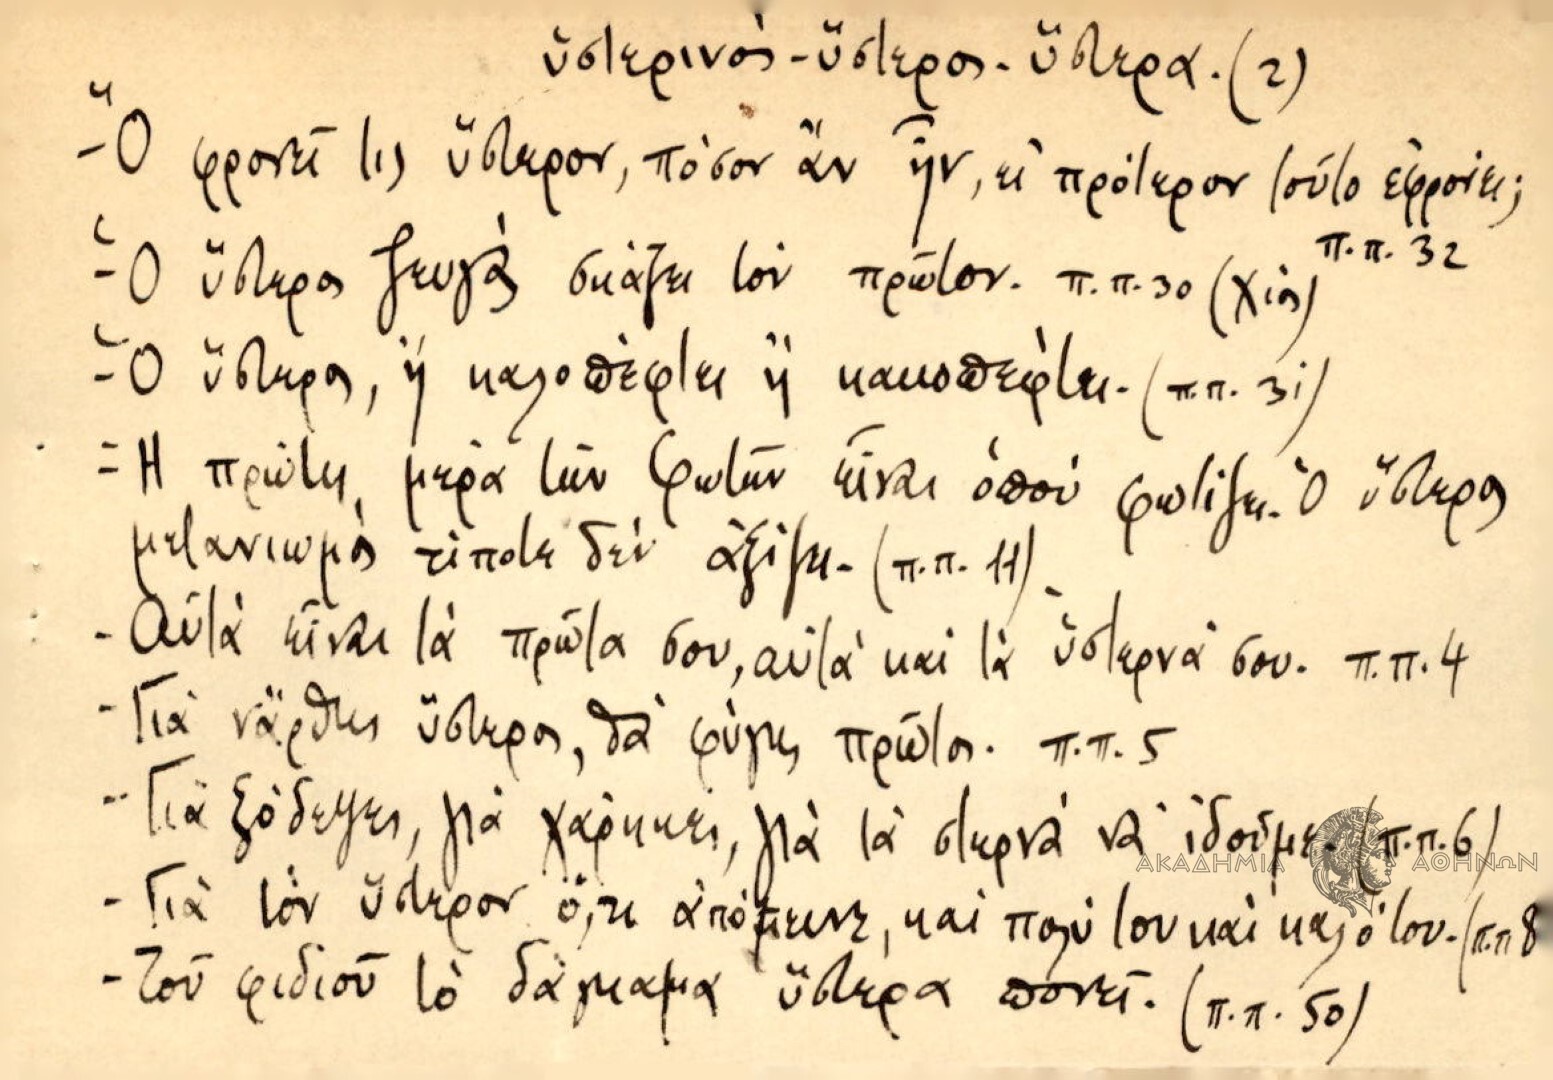 ὑστερινὸς - ὕστερος - ὕστερα. (2)
- Ὃ φρονεῖ τις ὕστερον, πόσον ἂν ἦν, εἰ πρότερον τοῦτο ἐφρόνει;
π.π. 32
- Ὁ ὕστερος ζευγᾶς σκάζει τὸν πρῶτον. π.π. 30 (Χίος)
- Ὁ ὕστερος, ἢ καλοπέφτει ἢ κακοπέφτει. (π.π. 31)
- Ἡ πρώτη μερὰ τῶν Φωτῶν εἶναι ὁποὺ φωτίζει. Ὁ ὕστερος
μετανιωμὸς τίποτε δὲν ἀξίζει. (π.π. 11)
- Αὐτὰ εἶναι τὰ πρῶτα σου, αὐτὰ καὶ τὰ ὑστερνά σου. π.π. 4
- Γιὰ νἄρθεις ὕστερος, θὰ φύγεις πρῶτος. π.π. 5
- Γιὰ ξόδεψες, γιὰ χάρηκες, γιὰ τὰ στερνὰ νὰ ἰδοῦμε. (π.π. 6)
ΑΚΑΔΗΜΙΑ ΑΘΗΝΩΝ
- Γιὰ τὸν ὕστερον ὅ,τι ἀπόμεινε, καὶ πολύ του καὶ καλό του. (π.π 8
- Τοῦ φιδιοῦ τὸ δάγκαμα ὕστερα πονεῖ. (π.π. 50)